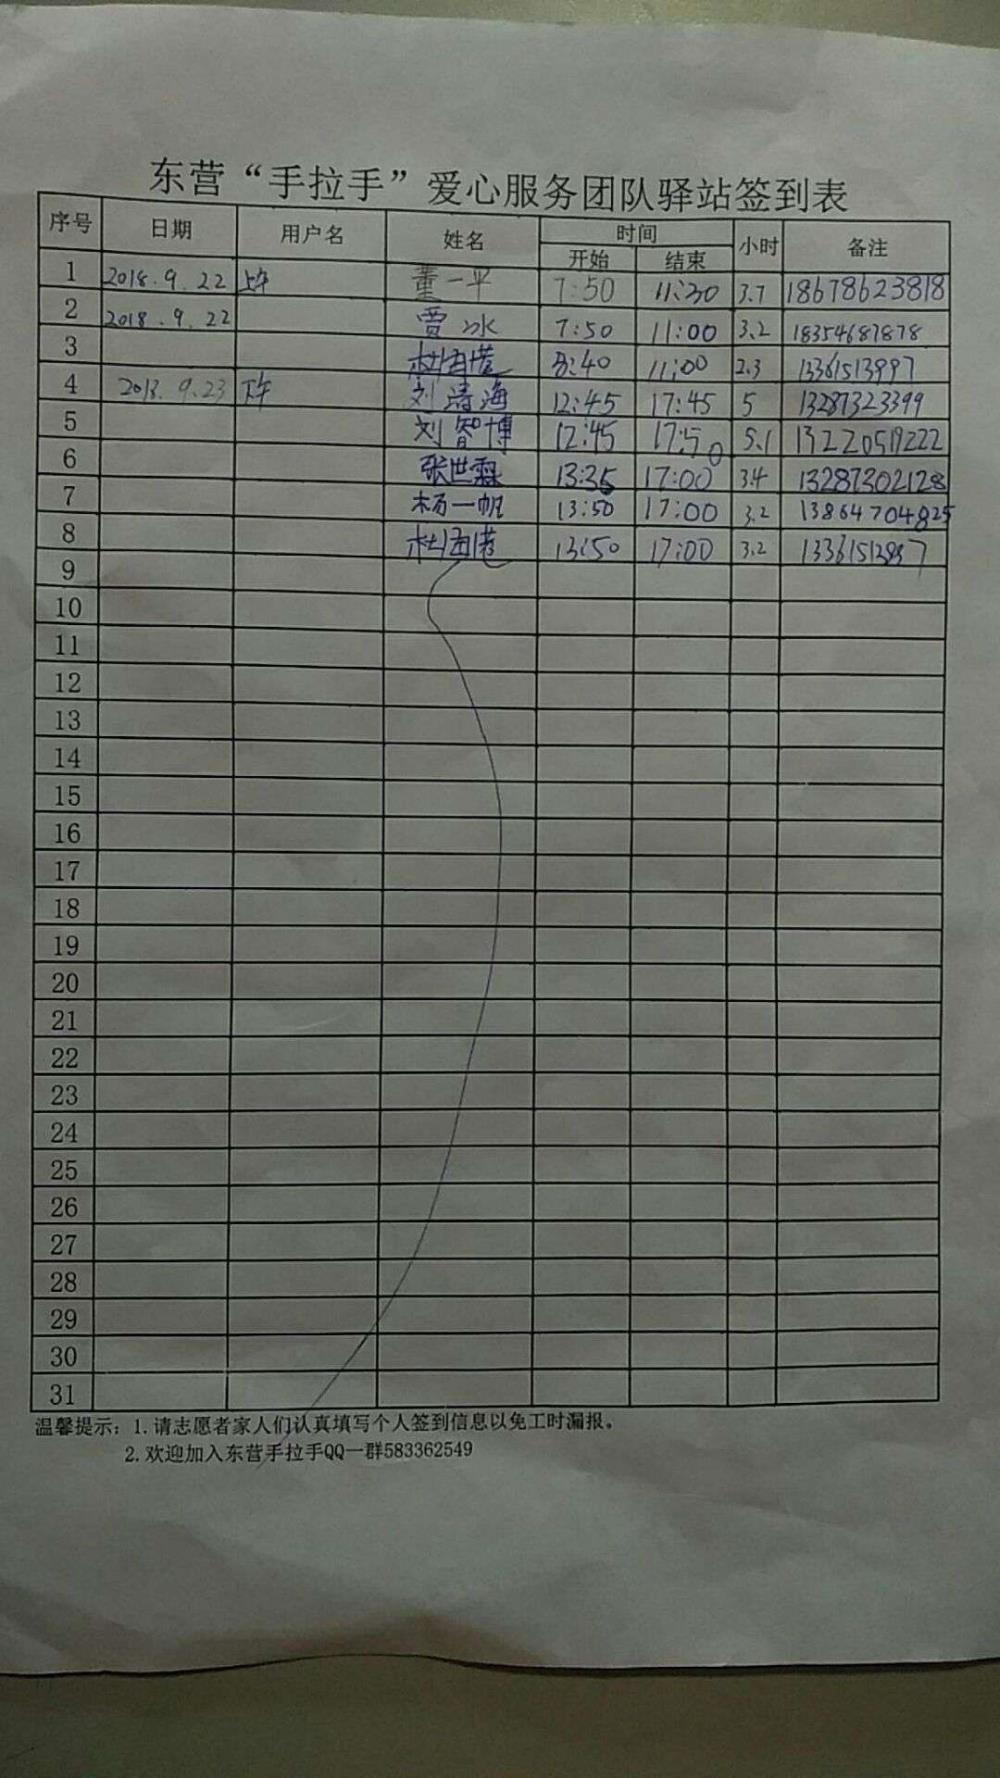 东营“手拉手”爱心服务团队驿站签到表
序号 日期 用户名 姓名 时间 小时 备注
开始 结束
1 2018.9.22 上午 董一平 7:50 11:30 3.7 18678623818
2 2018.9.22 贾冰 7:50 11:00 3.2 18354687878
3 8:40 11:00 2.3 13361513997
4 2018.9.23 下午 刘清海 12:45 17:45 5 13287323399
5 刘智博 12:45 17:50 5.1 13220519222
6 张世霖 13:35 17:00 3.4 13287302128
7 杨一帆 13:50 17:00 3.2 13864704825
8 13:50 17:00 3.2
9
10
11
12
13
14
15
16
17
18
19
20
21
22
23
24
25
26
27
28
29
30
31
温馨提示：1.请志愿者家人们认真填写个人签到信息以免工时漏报。
2.欢迎加入东营手拉手QQ一群583362549